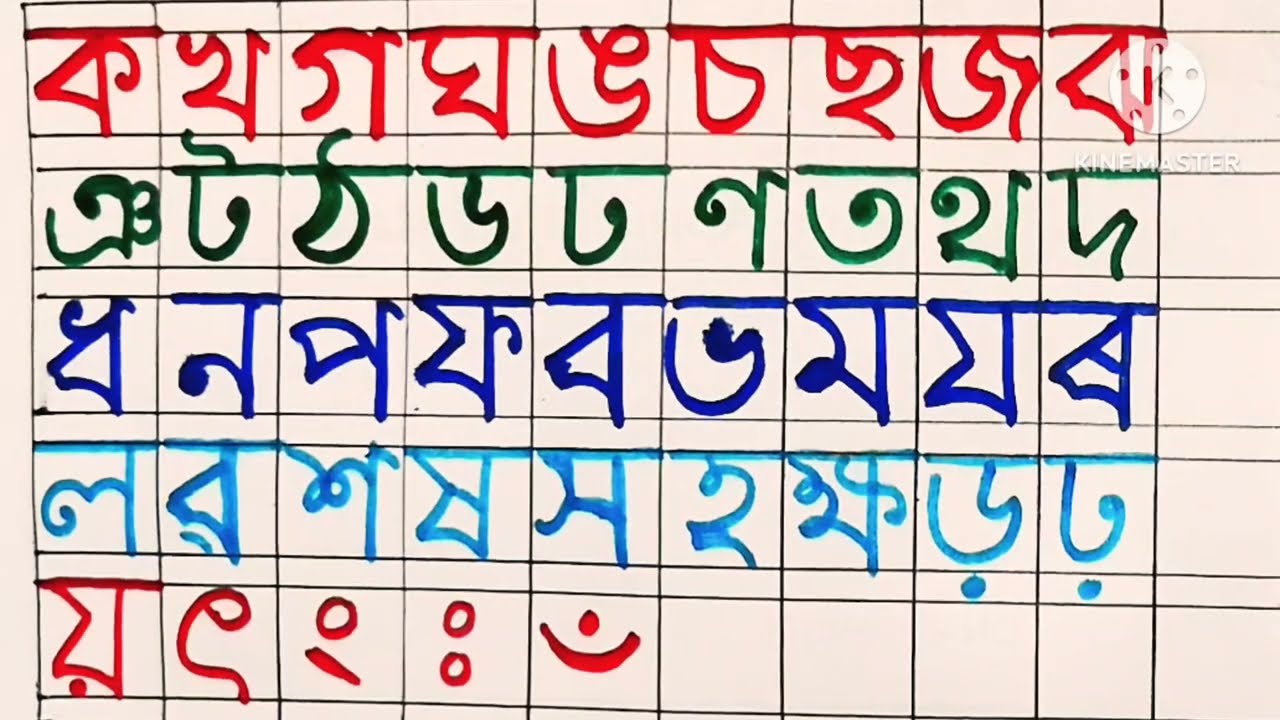 ক খ গ ঘ ঙ চ ছ জ ঝ
KINEMASTER
ঞ ট ঠ ড ঢ ণ ত থ দ
ধ ন প ফ ব ভ ম য ৰ
ল ৱ শ ষ স হ ক্ষ ড় ঢ়
য় ৎ ং ঃ ঁ